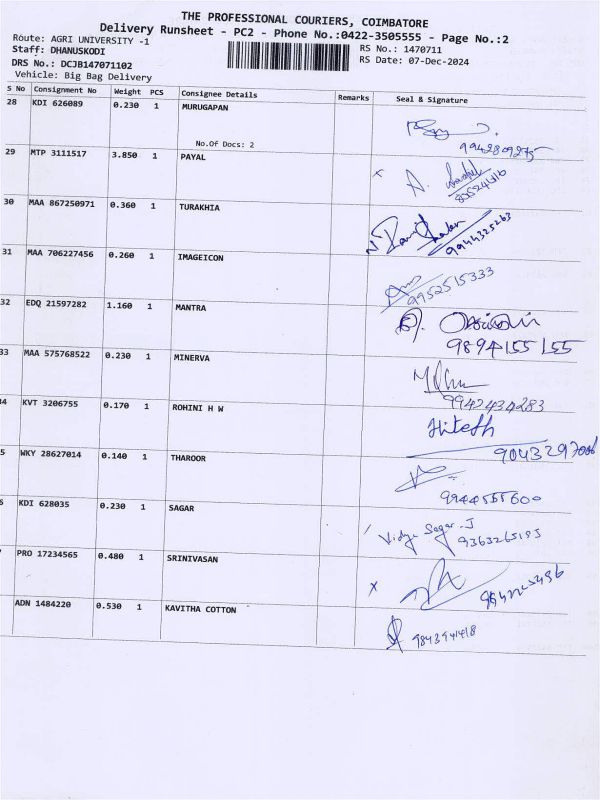 THE PROFESSIONAL COURIERS, COIMBATORE
Delivery Runsheet - PC2 - Phone No.:0422-3505555 - Page No.:2
Route: AGRI UNIVERSITY -1 RS No.: 1470711
Staff: DHANUSKODI RS Date: 07-Dec-2024
DRS No.: DCJB147071102
Vehicle: Big Bag Delivery
S No Consignment No Weight PCS Consignee Details Remarks Seal & Signature
28 KDI 626089 0.230 1 MURUGAPAN
No.Of Docs: 2 9942809275
29 MTP 3111517 3.850 1 PAYAL
30 MAA 867250971 0.360 1 TURAKHIA
9944325263
31 MAA 706227456 0.260 1 IMAGEICON
9952515333
32 EDQ 21597282 1.160 1 MANTRA
9894155155
33 MAA 575768522 0.230 1 MINERVA
9942434283
34 KVT 3206755 0.170 1 ROHINI H W Hitesh
9043297006
5 WKY 28627014 0.140 1 THAROOR
9944555600
6 KDI 628035 0.230 1 SAGAR
Vidya Sagar. J 9363265193
PRO 17234565 0.480 1 SRINIVASAN
x
ADN 1484220 0.530 1 KAVITHA COTTON
9843941418